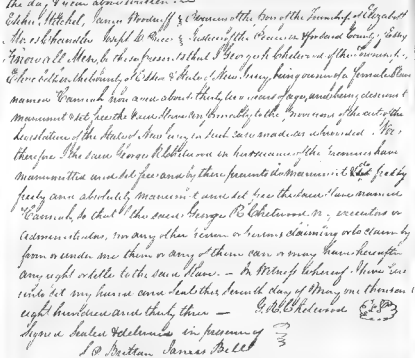 the day & year above written
Elihu Mitchel, James Woodruff & Overseers of the Poor of the Township of Elizabeth
Moses Chandler Joseph C. Justices of the Peace in & for said County of Essex
Know all Men, by these presents that I George R. Chetwood of the Township of
Elizabeth in the County of Essex & State of New Jersey being owner of a female Slave
named Hannah now aged about thirty two years of age, and being desirous to
manumit & set free the said Slave conformably to the provisions of the act of the
legislature of the State of New Jersey in such case made and provided. Now
therefore I the said George R. Chetwood in pursuance of the premises have
manumitted and set free and by these presents do manumit & do set free by
freely and absolutely manumit and set free the said Slave named
Hannah, so that I the said George R Chetwood my executors or
administrators, nor any other person or persons claiming or to claim by
from or under me them or any of them can or may have hereafter
any right or title to the said Slave. — In Witness Whereof I have here
unto set my hand and seal the seventh day of May one thousand
eight hundred and thirty three —
G. R. Chetwood LS
Signed Sealed & delivered in presence of
S. D. Brittan James Bell